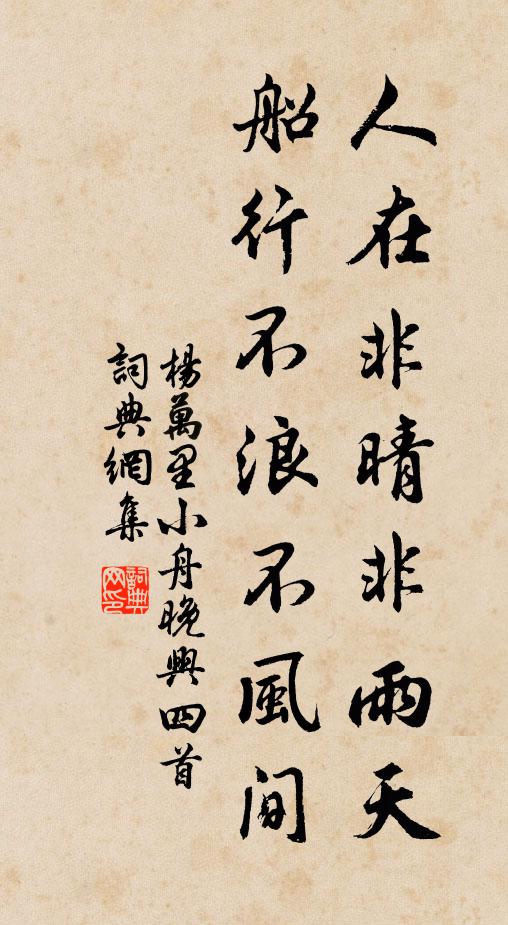 人在非晴非雨天
船行不浪不風间
楊萬里小舟晚興四首
詞典網集
詞典
网印